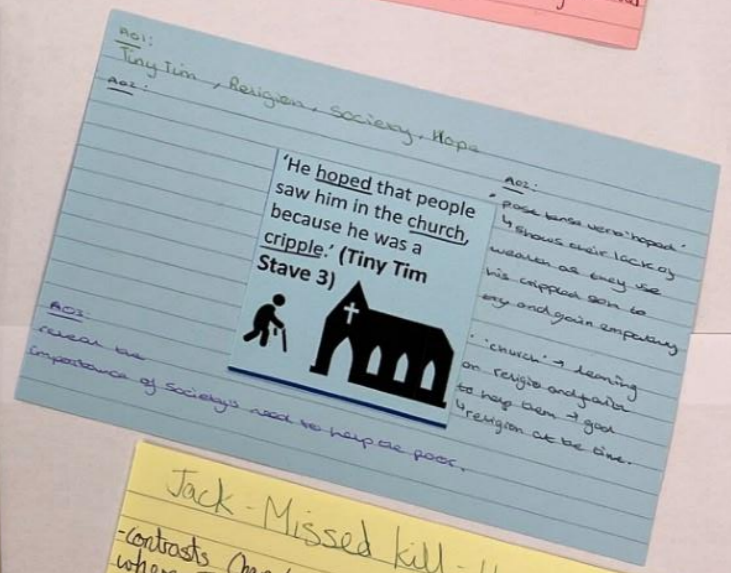 AO1:
Tiny Tim, Religion, Society, Hope
AO2:
'He hoped that people
saw him in the church,
because he was a
cripple.' (Tiny Tim
Stave 3)
AO2:
• past tense verb 'hoped'
↳ shows their lack of
wealth as they use
his crippled son to
try and gain empathy
• 'church' → leaning
on religio and faith
to help them → god
↳ religion at the time.
AO3:
reveal the
importance of society's need to help the poor.
Jack - Missed kill -
- contrasts
where